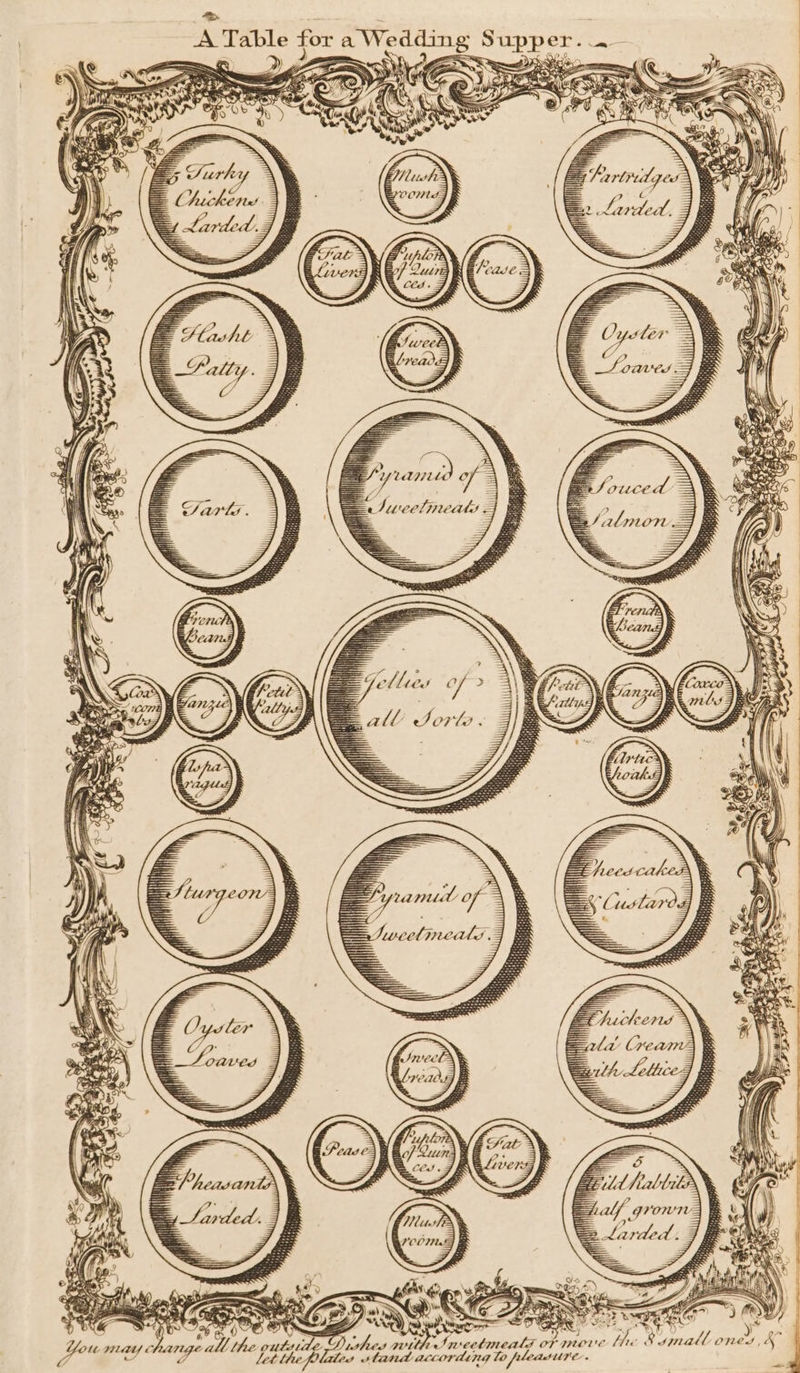 A Table for a Wedding Supper.
5 Turky
Chickens
1 Larded.
Mush
rooms
4 Partridges
2 Larded.
Fat
Livers
Pupton
of Quin
ces.
Pease.
Hasht
Patty.
Sweet
breads
Oyster
Loaves.
Tarts.
Pyramid of
Sweetmeats.
Souced
Salmon.
French
Beans
French
Beans
Cox
com
bs
Tanzie
Petit
Pattys
Jellies of
all Sorts.
Petit
Pattys
Tanzie
Coxco
mbs
Aspa
ragus
Artic
hoaks
Sturgeon
Pyramid of
Sweetmeats.
Cheescakes
& Custards
Oyster
Loaves
Sweet
breads
Chickens
ala Cream
with Lettice
Pease
Pupton
of Quin
ces.
Fat
Livers
Pheasants
Larded.
Mush
rooms
5
Wild Rabbits
half grown
2 Larded.
You may change all the outside Dishes with Sweetmeats or move the 8 small ones, &
let the Plates stand according to pleasure.